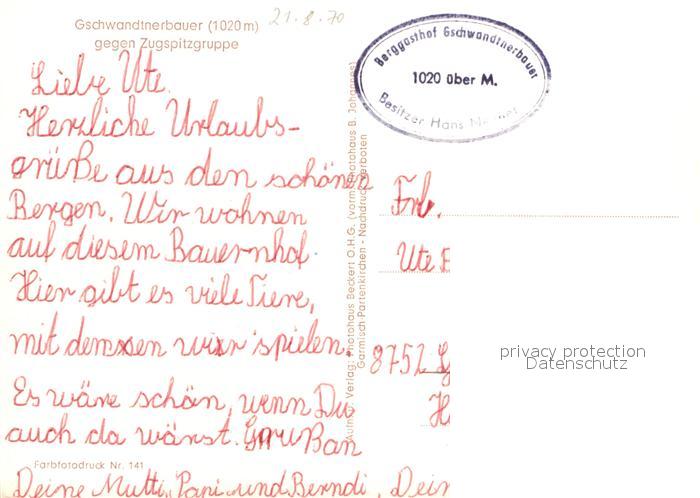 21.8.70
Gschwandtnerbauer (1020 m)
gegen Zugspitzgruppe
Berggasthof Gschwandtnerbauer
1020 über M.
Besitzer Hans
Liebe Ute.
Herzliche Urlaubs-
grüße aus den schönen
Bergen. Wir wohnen
auf diesem Bauernhof.
Hier gibt es viele Tiere,
mit denen wir spielen.
Es wäre schön, wenn Du
auch da wärst.
Deine Mutti, Papi und Berndi. Dein
Farbfotodruck Nr. 141
Verlag: Photohaus Beckert O.H.G. (vorm. Photohaus B. Johannes)
Garmisch-Partenkirchen - Nachdruck verboten
Frl.
Ute
8752
privacy protection
Datenschutz